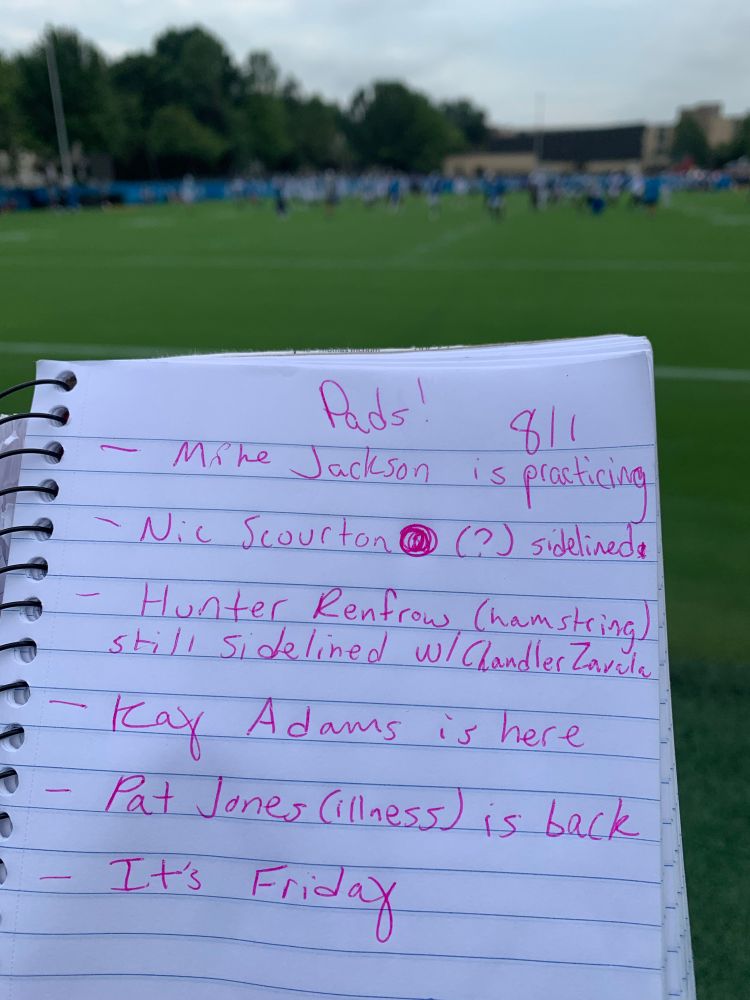 Pads!
8/1
- Mike Jackson is practicing
- Nic Scourton (?) sidelined.
- Hunter Renfrow (hamstring)
still sidelined w/ Chandler Zavala
- Kay Adams is here
- Pat Jones (illness) is back
- It's Friday